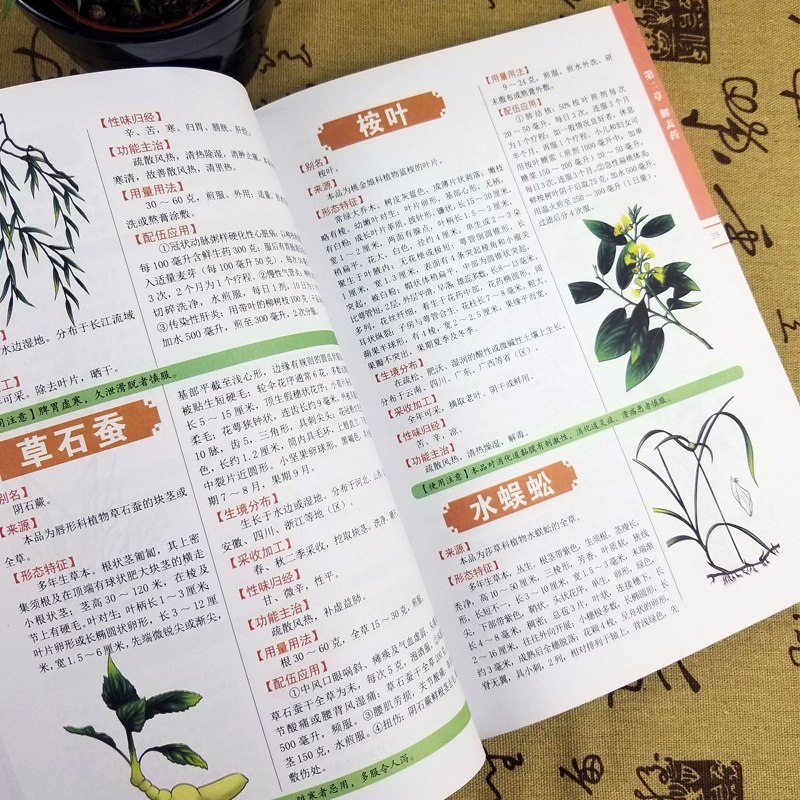 【性味归经】
辛、苦，寒。归胃、膀胱、肝经。
【功能主治】
疏散风热，清热除湿，消肿止痛。
寒清，故善散风热，清里热。
【用量用法】
30～60克，煎服。外用：适量，
洗或熬膏涂敷。
【配伍应用】
①冠状动脉粥样硬化性心脏病：
每100毫升含鲜生药300克，
入适量麦芽（每100毫升50克），
3次，2个月为1个疗程。②慢性气管炎：
切碎洗净，水煎服，每日1剂，
③传染性肝炎：用带叶的柳树枝100克
加水500毫升，煎至300毫升，2次分服。
水边湿地。分布于长江流域
可采，除去叶片，晒干。
脾胃虚寒，久泄滑脱者慎服。
草石蚕
别名】
阴石蕨。
【来源】
本品为唇形科植物草石蚕的块茎或
全草。
【形态特征】
多年生草本。根状茎匍匐，其上密
集须根及在顶端有球状肥大块茎的横走
小根状茎；茎高30～120米，在棱及
节上有硬毛。叶对生；叶柄长1～3厘米；
叶片卵形或长椭圆状卵形，长3～12厘
米，宽1.5～6厘米，先端微锐尖或渐尖，
基部平截至浅心形，边缘有规则的圆齿
被贴生短硬毛；轮伞花序通常6花，
长5～15厘米，顶生假穗状花序；
柔毛；花萼狭钟状，连齿长约9毫米，
10脉，齿5，三角形，具刺尖头；花冠
色，长约1.2厘米，筒内具毛环，上唇直立，
中裂片近圆形。小坚果卵球形，黑褐色，
期7～8月，果期9月。
【生境分布】
生长于水边或湿地。分布于河北、
安徽、四川、浙江等地（区）。
【采收加工】
春、秋二季采收，挖取块茎，洗净，
【性味归经】
甘、微辛，性平。
【功能主治】
疏散风热，补虚益肺。
【用量用法】
根30～60克，全草15～30克，煎服
【配伍应用】
①中风口眼㖞斜，瘫痪及气血虚弱，
草石蚕干全草为末，每次5克，泡酒服。
节酸痛或腰背风湿痛：草石蚕干全草
500毫升，频服。③腰肌劳损，关节酸痛：
茎150克，水煎服。④扭伤：阴石蕨鲜根茎
敷伤处。
胜寒者忌用，多服令人泻。
桉叶
【别名】
桉叶。
【来源】
本品为桃金娘科植物蓝桉的叶片。
【形态特征】
常绿大乔木。树皮灰蓝色，成薄片状剥落；嫩枝
略有棱。幼嫩叶对生；叶片卵形，基部心形，无柄，
有白粉；成长叶片革质，披针形，镰状，长15～30厘米，
宽1～2厘米，两面有腺点，叶柄长1.5～3厘米，
稍扁平。花大，白色，径约4厘米，单生或2～3朵
聚生于叶腋内；无花梗或极短；萼管倒圆锥形，长
1厘米，宽1.3厘米，表面有4条突起棱角和小瘤突
起，被白粉；帽状体稍扁平，中部为圆锥状突起，
比萼管短，2层，外层平滑，早落；雄蕊多数，长8～13毫米，
多列，花丝纤细，着生于花药中部，花药椭圆形，阔
耳状纵裂；子房与萼管合生，花柱长7～8毫米，粗大。
蒴果半球形，有4棱，宽2～2.5厘米，果缘平而宽，
果瓣不突出，果期夏季及冬季。
【生境分布】
在疏松、肥沃、湿润的酸性或微碱性土壤上生长。
分布于云南、四川、广东、广西等省（区）。
【采收加工】
全年可采，摘取老叶，阴干或鲜用。
【性味归经】
苦、辛，凉。
【功能主治】
疏散风热，清热燥湿，解毒。
【用量用法】
9～24克，煎服，煎水外洗，研
末撒布或熬膏外敷。
【配伍应用】
①肺结核：50%桉叶煎剂每次
20～50毫升，每日3次，连服3个月
为1个疗程，如一般情况良好者，休息
半个月，再服1个疗程。小儿和妇女可
用桉叶糖浆（煎剂1000毫升中，加单
糖浆150～200毫升）20～50毫升，
每日3次，连服3个月。②急性扁桃体炎：
鲜桉树叶阴干后取75克，加水500毫升，
用温火煎至250～300毫升（1日量），
过滤后分4次服。
【使用注意】本品对消化道黏膜有刺激性，消化道炎症、溃疡患者慎服。
水蜈蚣
【来源】
本品为莎草科植物水蜈蚣的全草。
【形态特征】
多年生草本，丛生，根茎带紫色，生须根，茎瘦长，
秃净，高10～50厘米，三棱形，芳香。叶质软，狭线
形，长短不一，长3～10厘米，宽1.5～3毫米，末端渐
尖，下部带紫色，鞘状。头状花序，单生，卵形，绿色，
长4～8毫米，稠密，总苞3片，叶状，连接穗下，长
2～16厘米，往往外向开展，小穗极多数，长椭圆形，长
约3毫米，成熟后全穗脱落，花颖4枚，呈舟状的卵形，
脊无翼，具小刺，2列，相对排列于轴上，背浅绿色，先
第二章 解表药
39